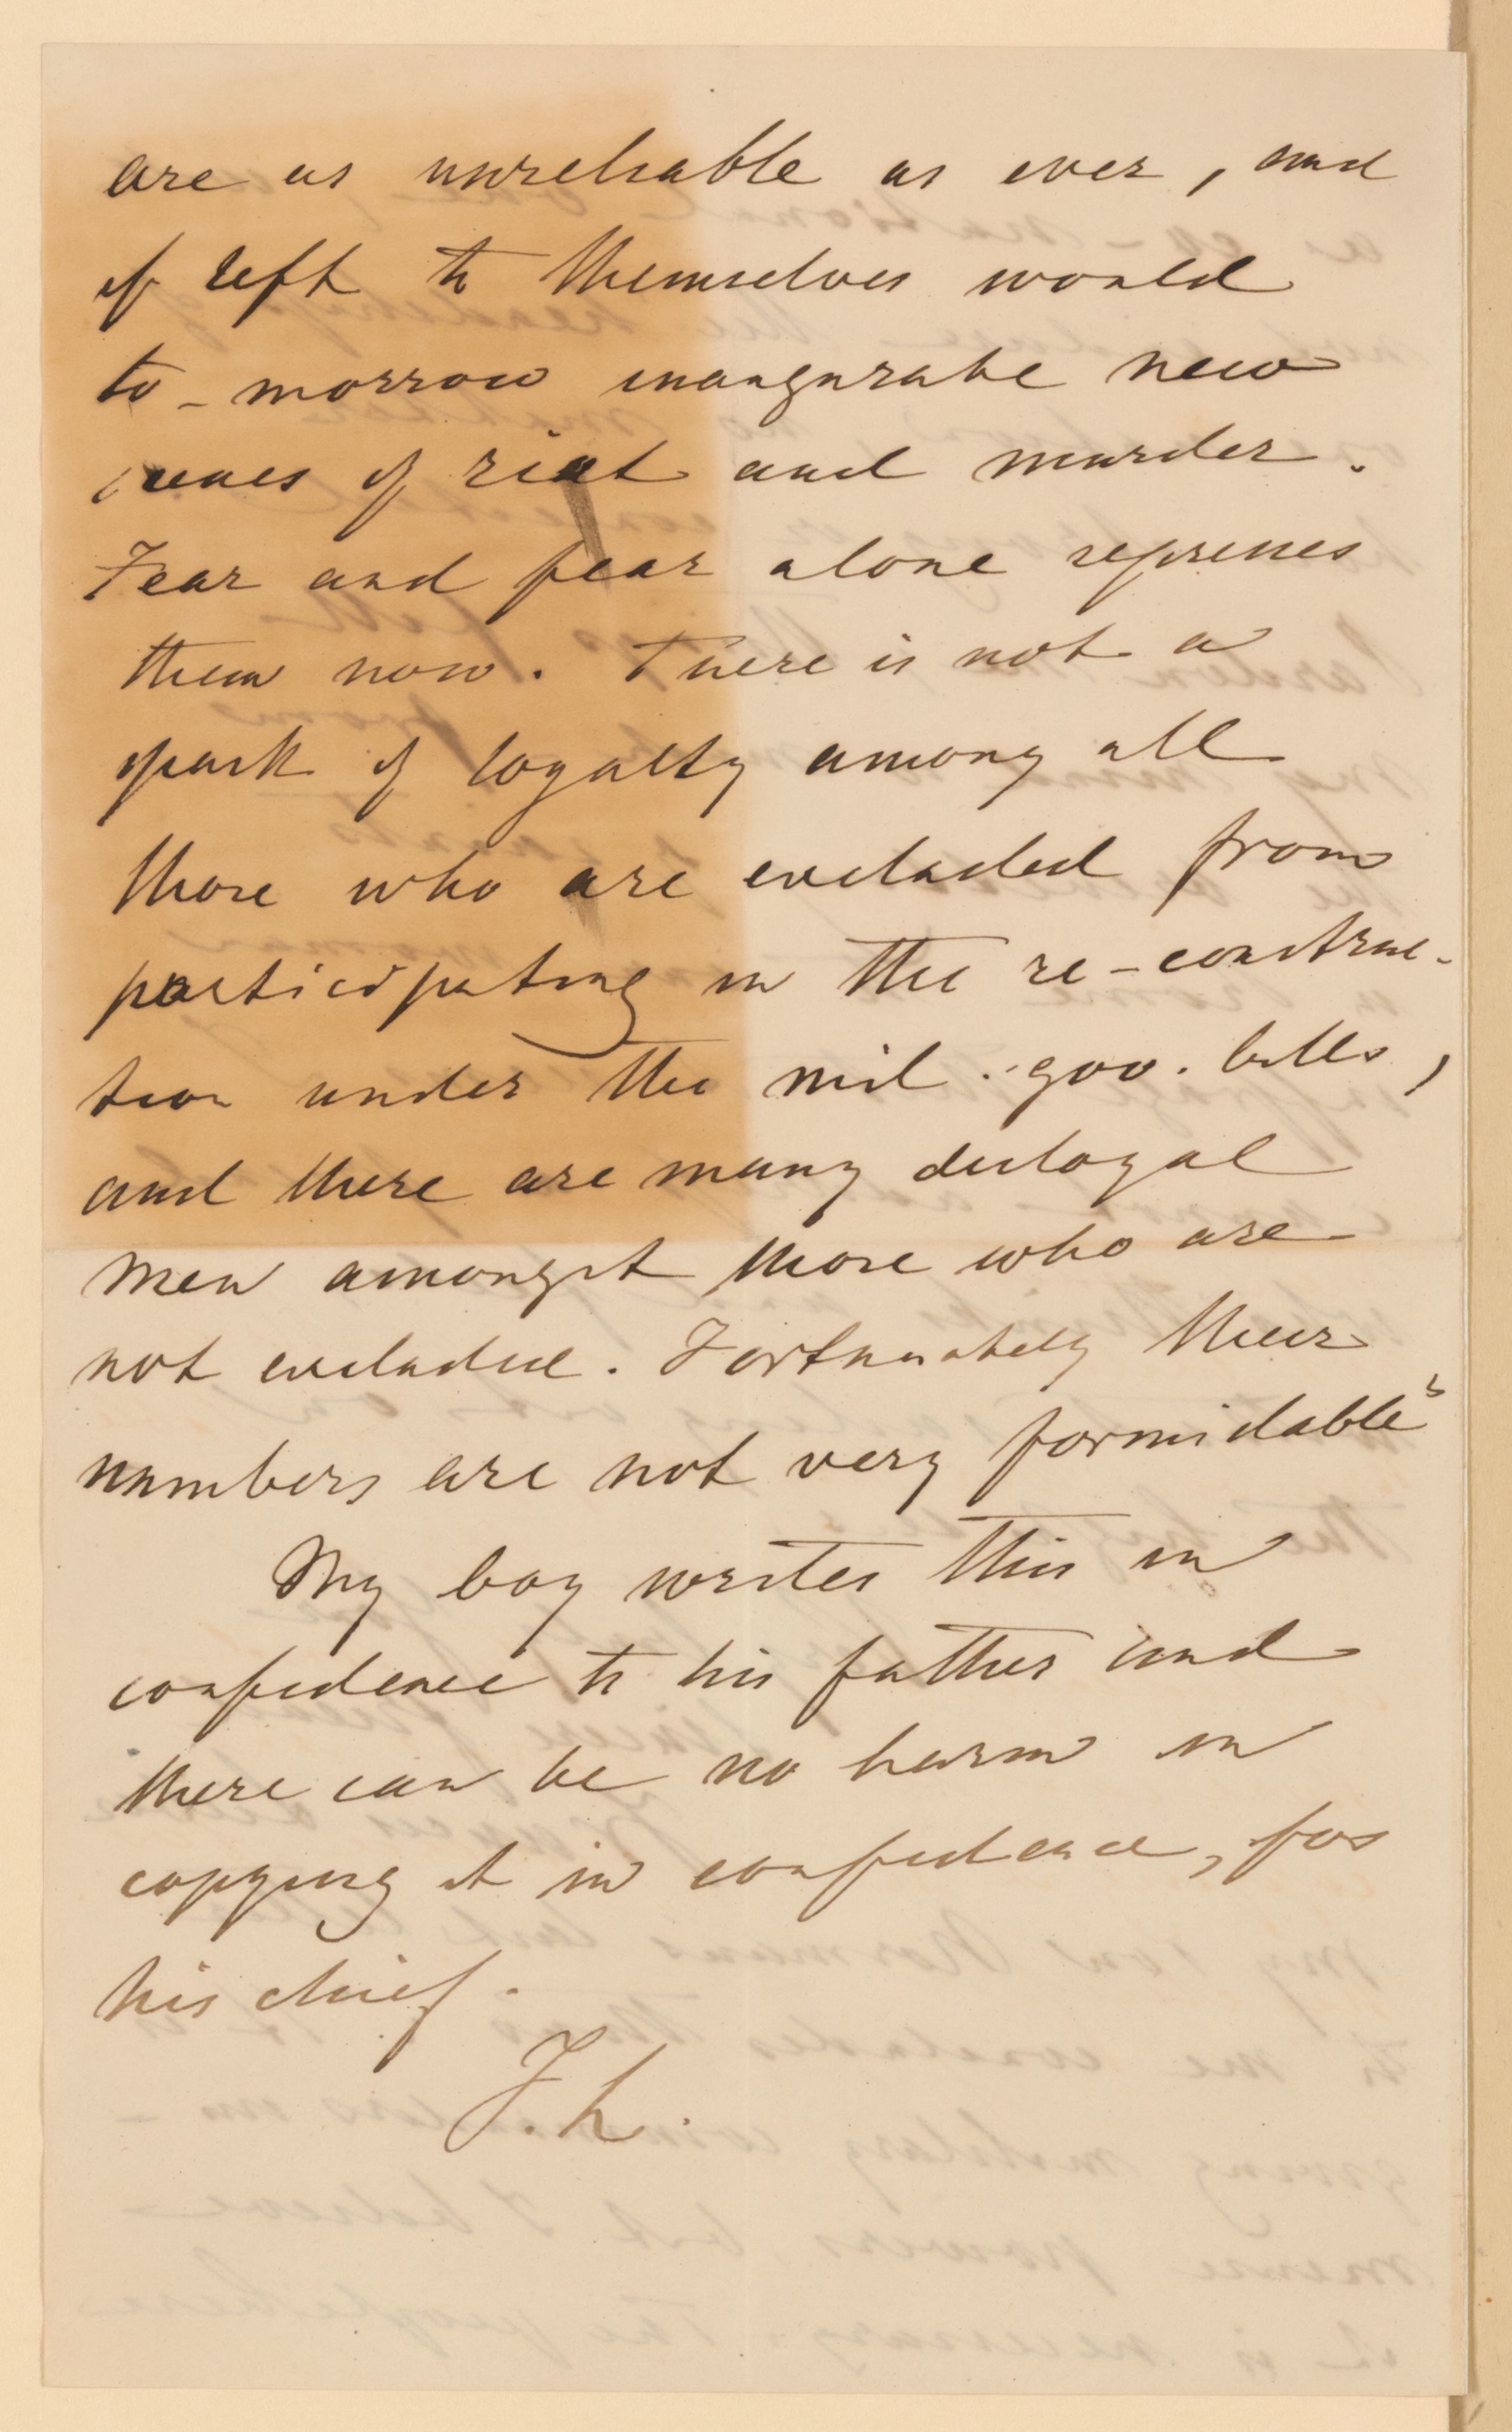 are as unreliable as ever, and
if left to themselves would
to-morrow inaugurate new
scenes of riot and murder.
Fear and fear alone represses
them now. There is not a
spark of loyalty among all
those who are excluded from
participating in the re-construc-
tion under the mil. gov. bills,
and there are many disloyal
men amongst those who are
not excluded. Fortunately their
numbers are not very formidable"
My boy writes this in
confidence to his father and
there can be no harm in
copying it in confidence, for
his chief.
F. L.